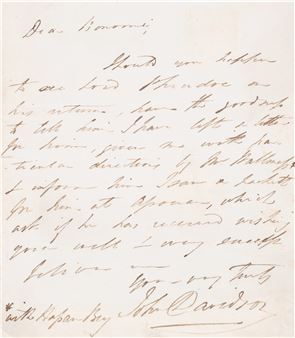 Dear Bonomi,
Should you happen
to see Lord Prudhoe on
his return, have the goodness
to tell him I have left a letter
for him, given me with par-
ticular directions by Mr
& inform him I saw a packet
for him at which
ask if he has received wishing
you well & every success
believe me
Yours very truly
John Davidson
with Hassan Bey